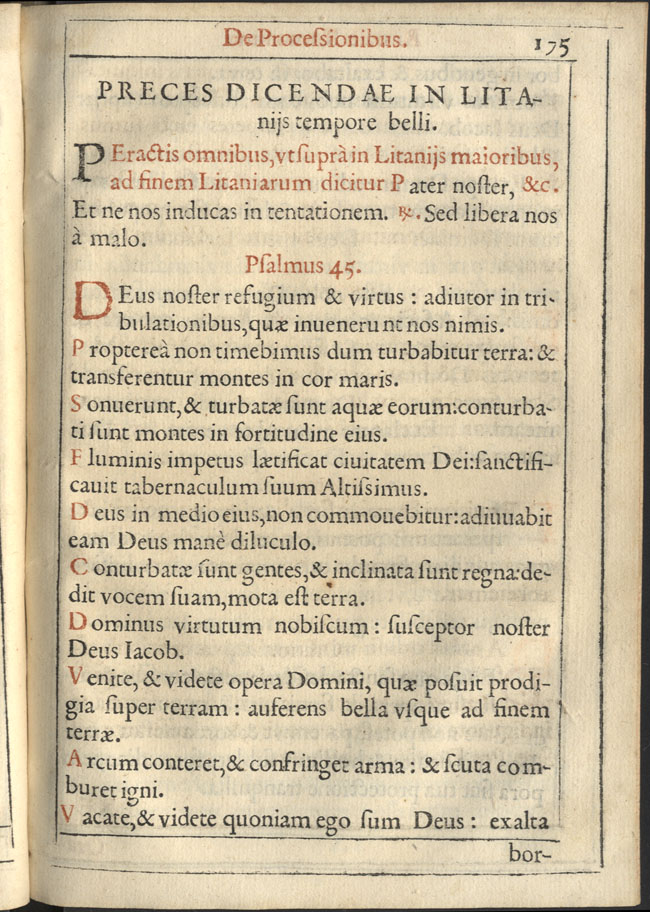 De Proceſsionibus.
175
PRECES DICENDAE IN LITA-
nijs tempore belli.
PEractis omnibus, vt suprà in Litanijs maioribus,
ad finem Litaniarum dicitur Pater noſter, &c.
Et ne nos inducas in tentationem. ℟. Sed libera nos
à malo.
Pſalmus 45.
DEus noſter refugium & virtus : adiutor in tri-
bulationibus, quæ inuenerunt nos nimis.
Proptereà non timebimus dum turbabitur terra: &
transferentur montes in cor maris.
Sonuerunt, & turbatæ ſunt aquæ eorum: conturba-
ti ſunt montes in fortitudine eius.
Fluminis impetus lætificat ciuitatem Dei: ſanctifi-
cauit tabernaculum ſuum Altiſsimus.
Deus in medio eius, non commouebitur: adiuuabit
eam Deus manè diluculo.
Conturbatæ ſunt gentes, & inclinata ſunt regna: de-
dit vocem ſuam, mota eſt terra.
Dominus virtutum nobiſcum : ſuſceptor noſter
Deus Iacob.
Venite, & videte opera Domini, quæ poſuit prodi-
gia ſuper terram : auferens bella vſque ad finem
terræ.
Arcum conteret, & confringet arma : & ſcuta com-
buret igni.
Vacate, & videte quoniam ego ſum Deus : exalta
bor-